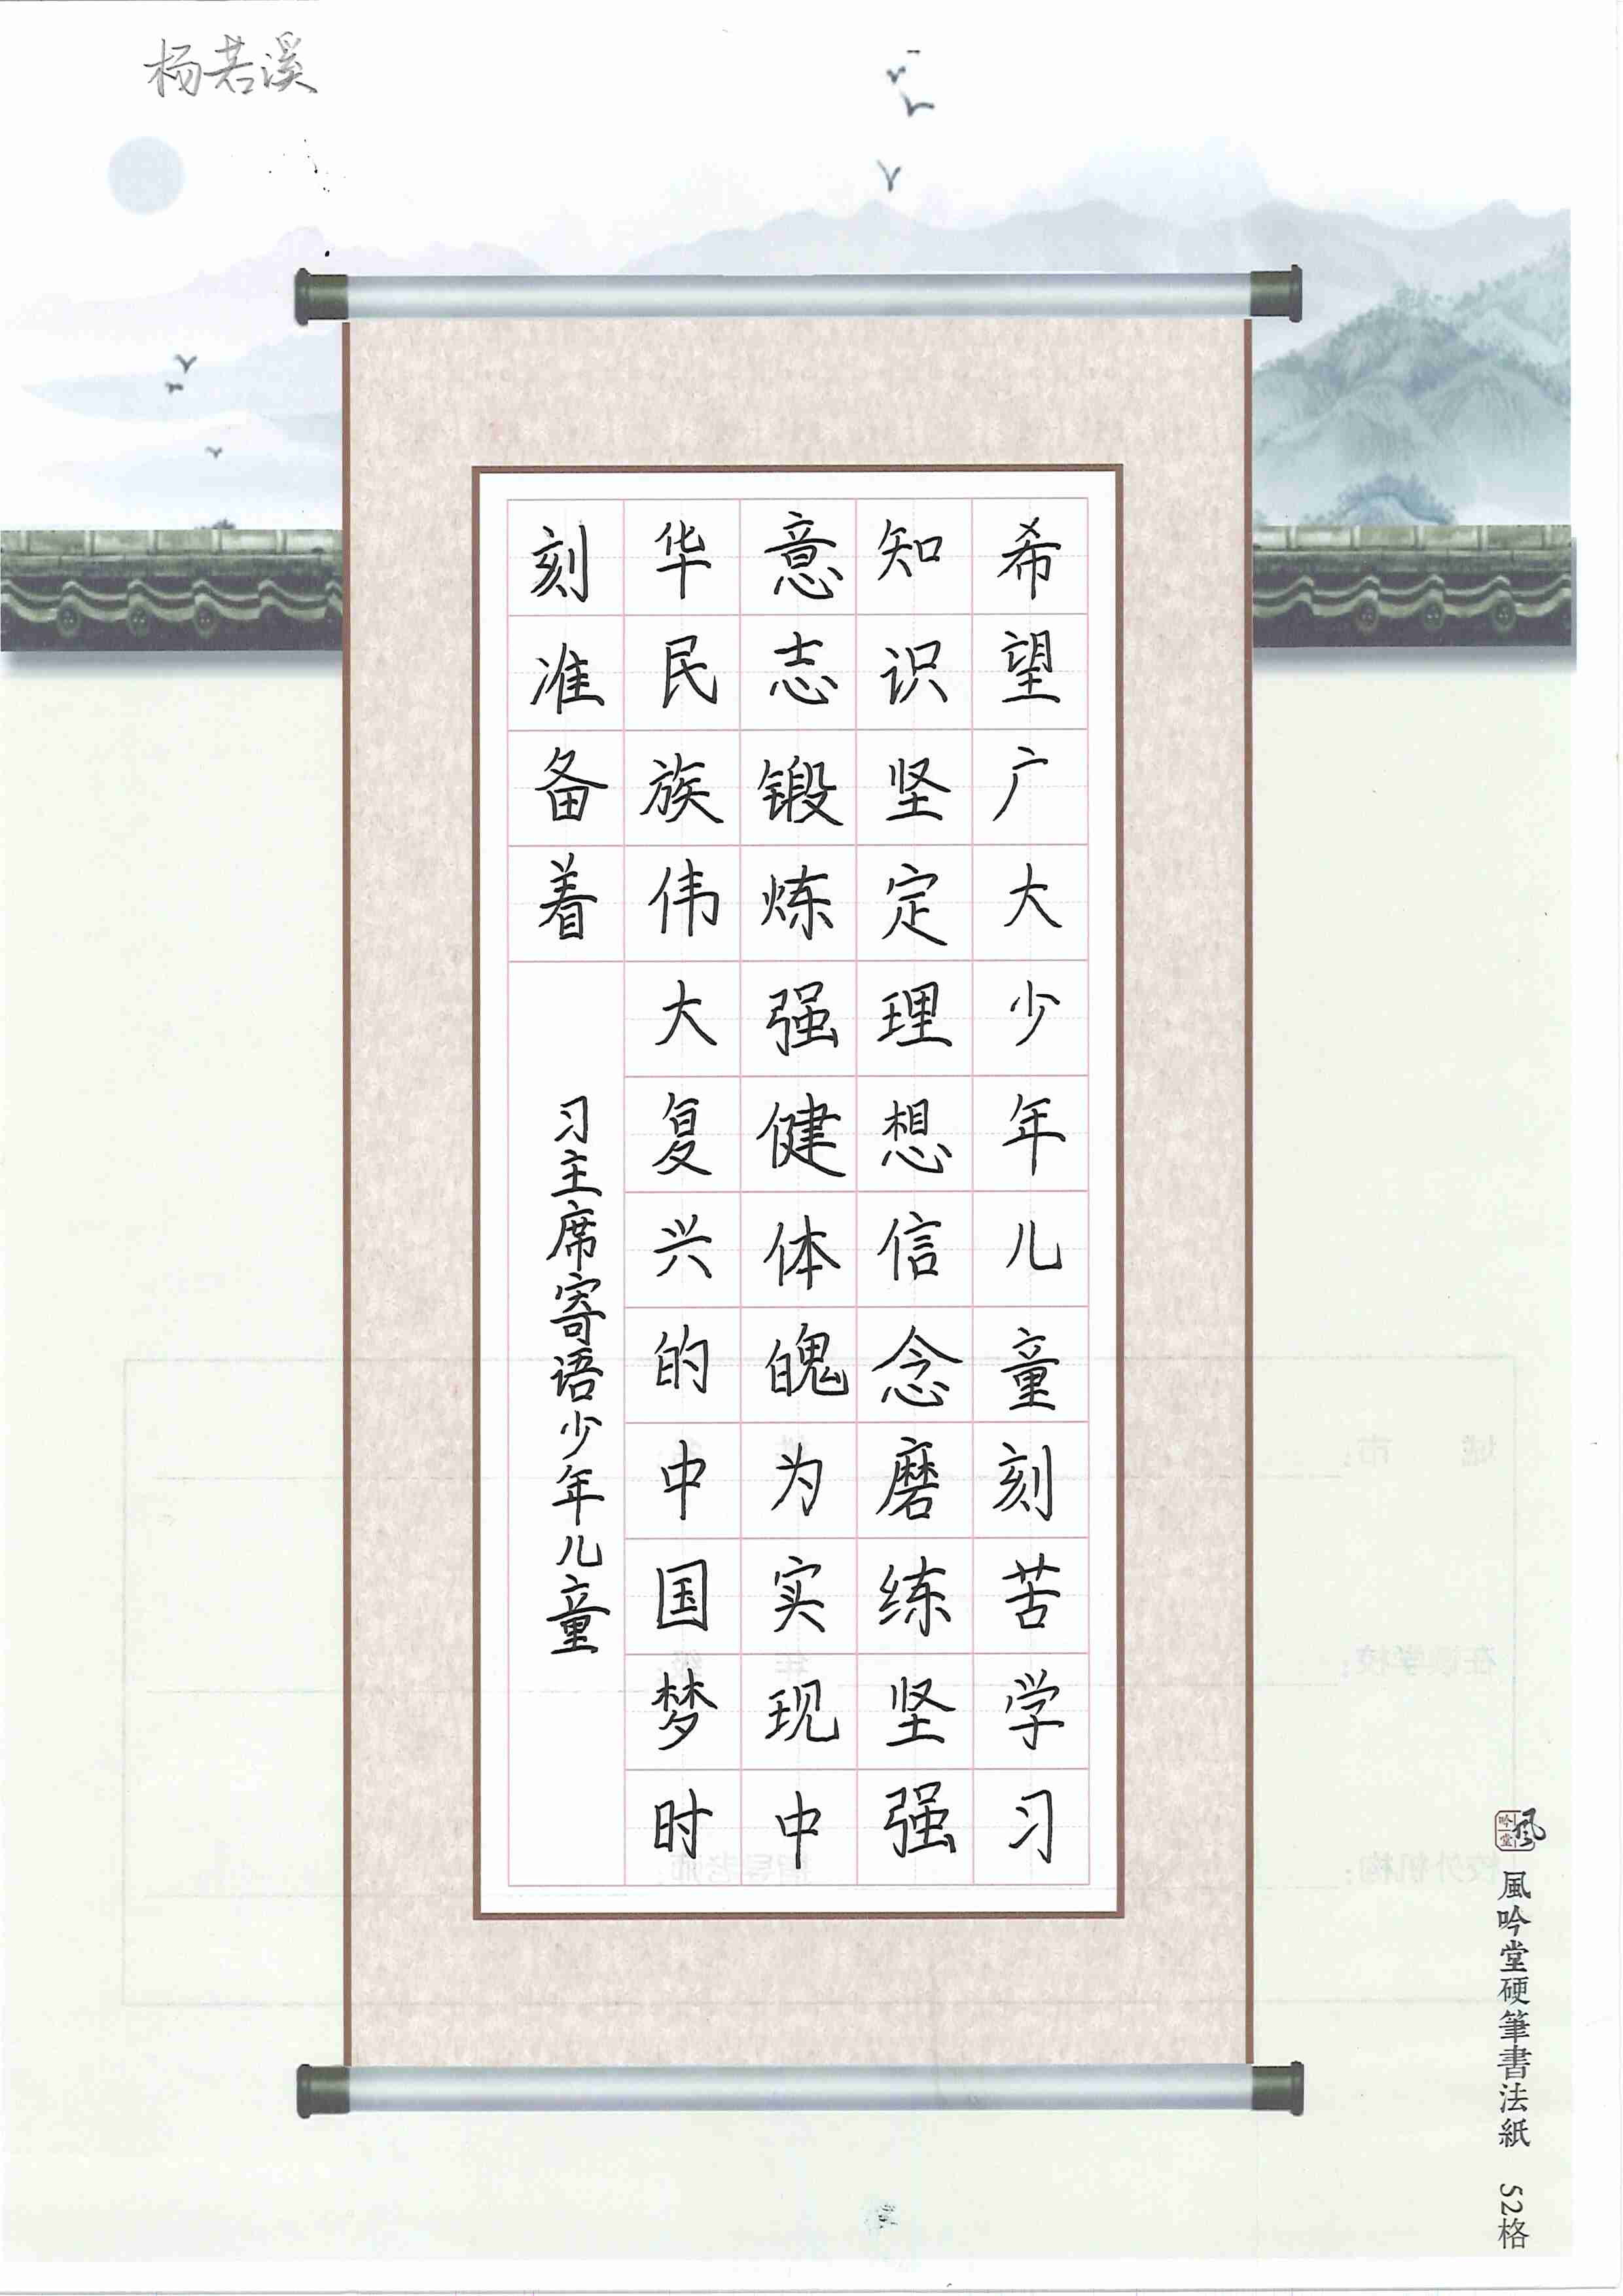 杨若溪
希望广大少年儿童刻苦学习
知识坚定理想信念磨练坚强
意志锻炼强健体魄为实现中
华民族伟大复兴的中国梦时
刻准备着
习主席寄语少年儿童
風吟堂硬筆書法紙 52格